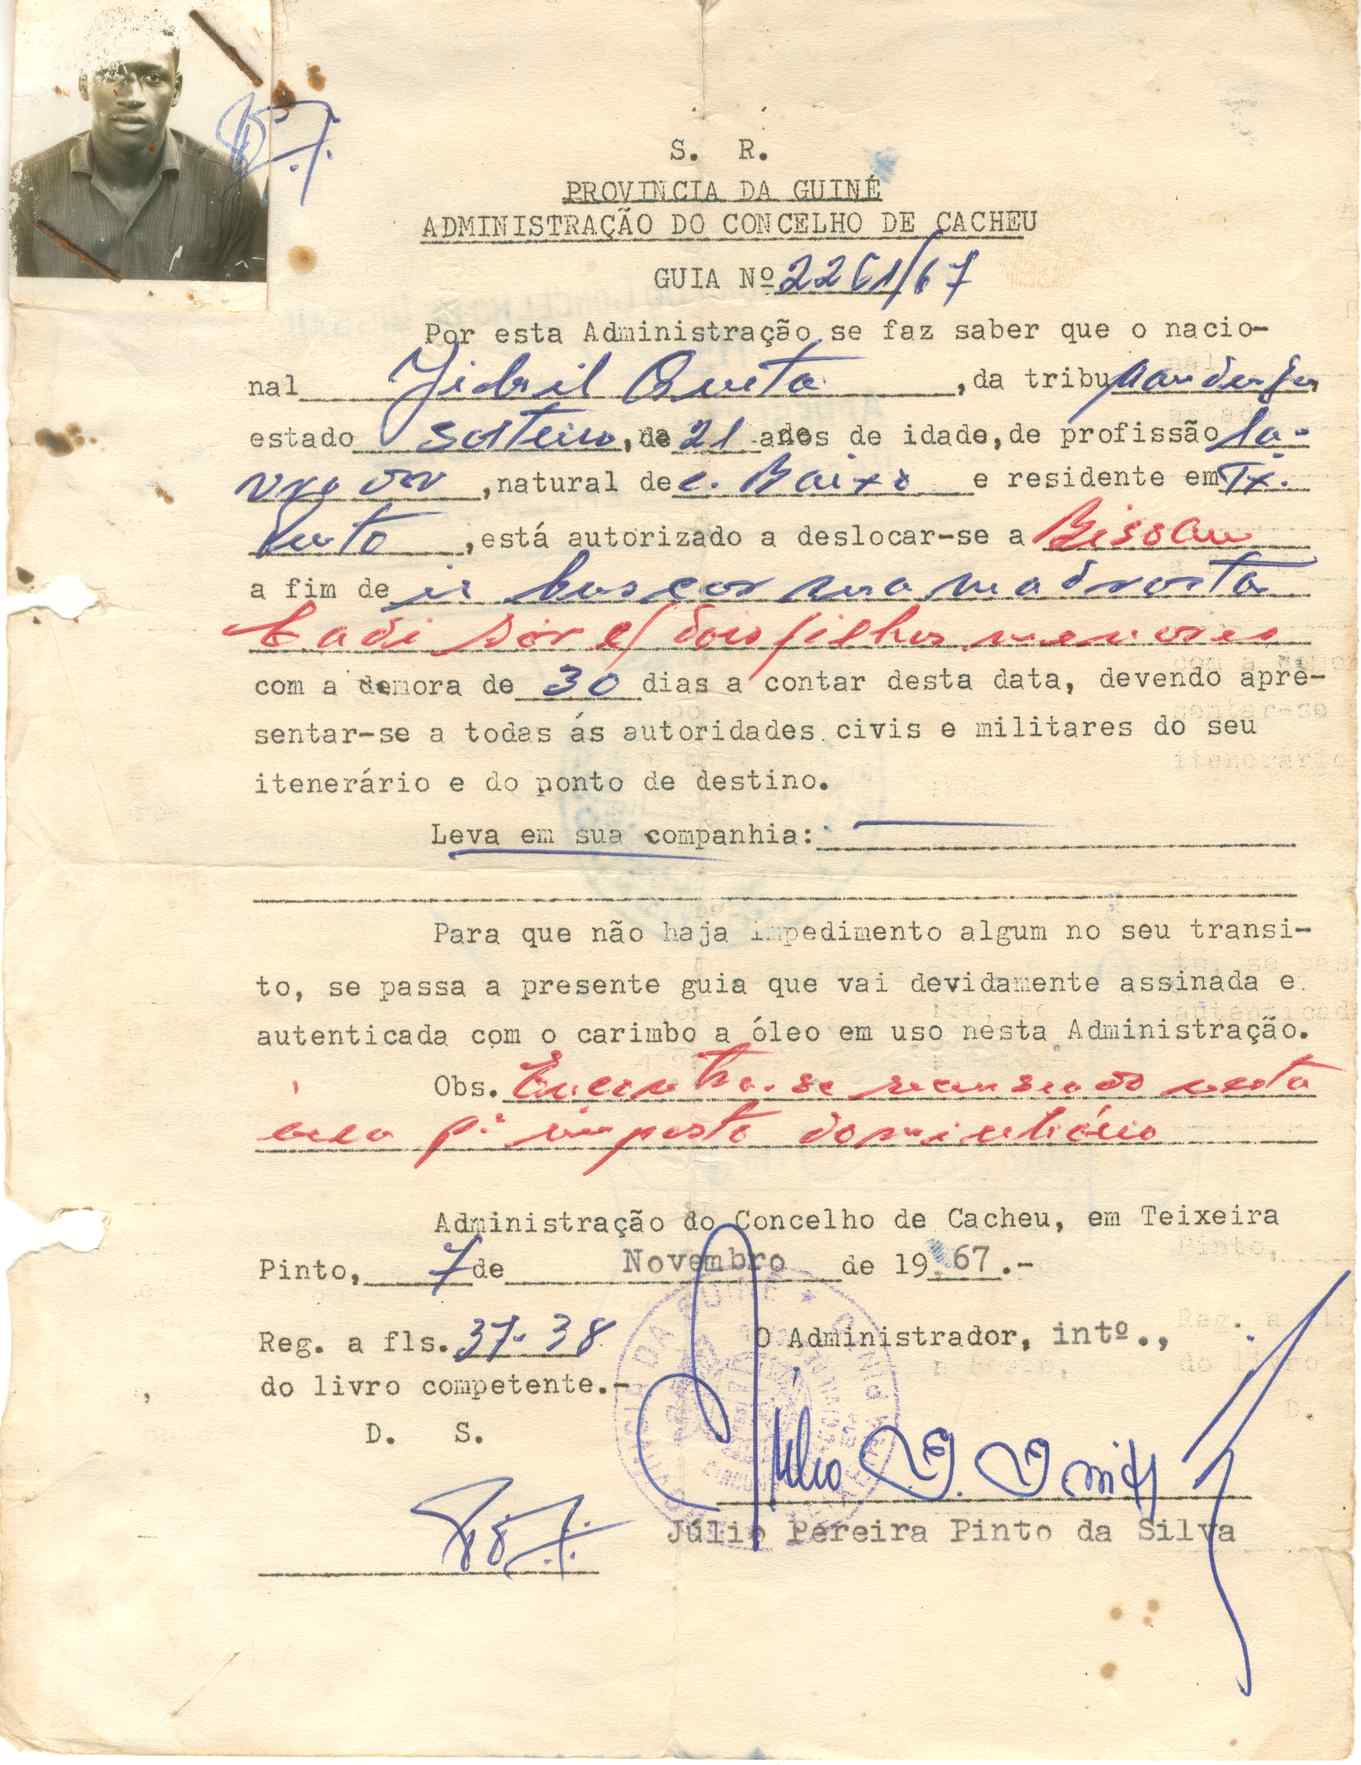 S. R.
PROVINCIA DA GUINÉ
ADMINISTRAÇÃO DO CONCELHO DE CACHEU
GUIA Nº 2261/67
Por esta Administração se faz saber que o nacio-
nal Jibril , da tribu
estado solteiro, de 21 anos de idade, de profissão la-
vrador , natural de C. Baixo e residente em Tx.
Pinto , está autorizado a deslocar-se a Bissau
a fim de ir buscar sua madrasta
Cadi c/ dois filhos menores
com a demora de 30 dias a contar desta data, devendo apre-
sentar-se a todas ás autoridades civis e militares do seu
itenerário e do ponto de destino.
Leva em sua companhia:
Para que não haja impedimento algum no seu transi-
to, se passa a presente guia que vai devidamente assinada e
autenticada com o carimbo a óleo em uso nesta Administração.
Obs. Encontra-se recenseado nesta
área pº imposto domiciliário
Administração do Concelho de Cacheu, em Teixeira
Pinto, 7 de Novembro de 1967.-
Reg. a fls. 37-38 O Administrador, intº.,
do livro competente.-
D. S.
Júlio Pereira Pinto da Silva